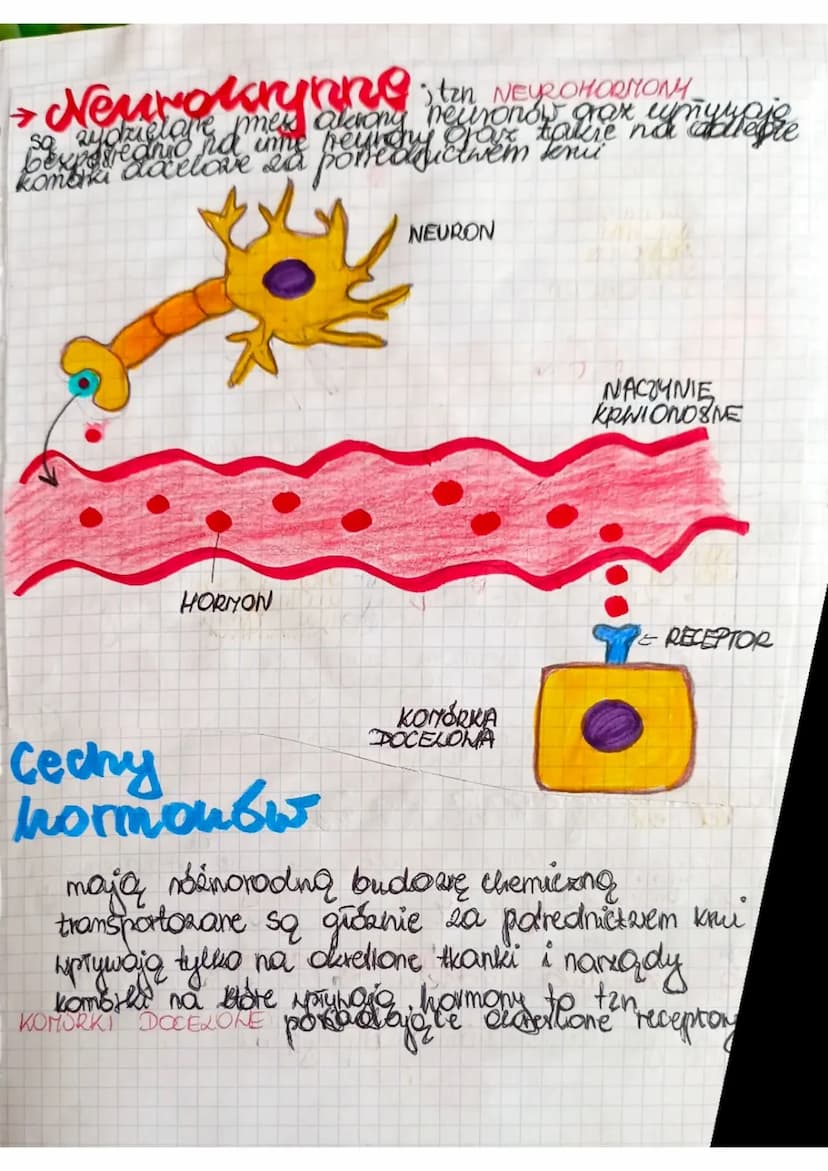 → Neurokrynne ; tzn NEUROHORMONY
są wydzielane przez aksony neuronów oraz wpływają
bezpośrednio na inne neurony oraz także na odległe
komórki docelowe za pośrednictwem krwi
NEURON
NACZYNIE
KRWIONOŚNE
HORMON
← RECEPTOR
KOMÓRKA
DOCELOWA
Cechy
hormonów
mają różnorodną budowę chemiczną
transportowane są głównie za pośrednictwem krwi
wpływają tylko na określone tkanki i narządy
komórki na które wpływają hormony to tzn
KOMÓRKI DOCELOWE posiadające określone receptory